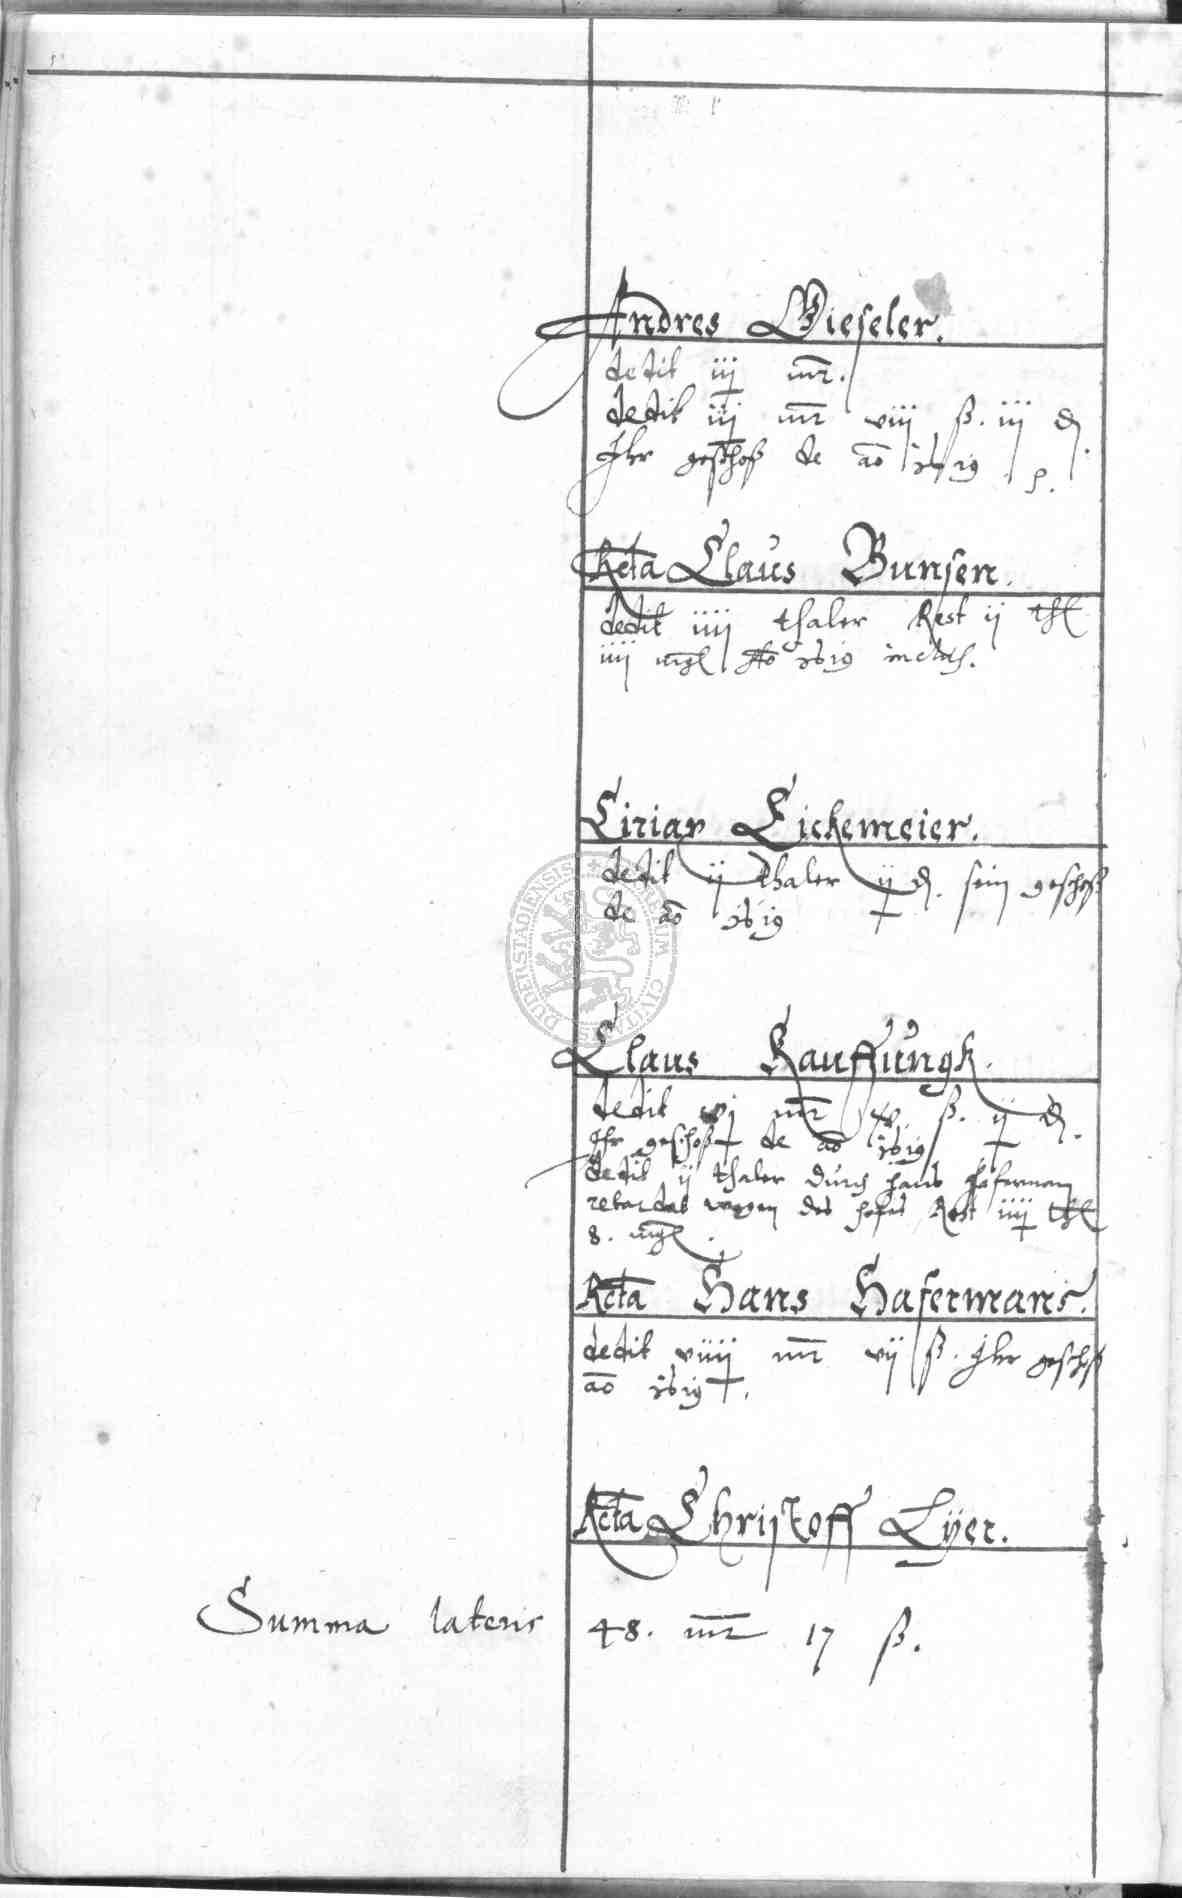 Andres Wieseler.
dedit iij mr.
dedit iij mr viij ß. iij ₰
Ihr geschoß de ao 1619
Rcta Claus Bunsen.
dedit iiij thaler Rest ij thl
iiij mgl Ao 1619 inclus.
Ciriax Eickemeier.
dedit ij thaler ij ₰. sein geschoß
de ao 1619
Claus Kauffungk.
dedit vj mr ß. ij ₰.
Ihr geschoß de ao 1619
dedit ij thaler durch Hans Haferman
retardat wegen des hofes Rest iiij thl
8. mgl
Rcta Hans Hafermans.
dedit viiij mr vij ß. Ihr geschoß
ao 1619.
Rcta Christoff Lÿer.
Summa lateris 48. mr 17 ß.
SIGILLUM CIVITATIS DUDERSTADIENSIS